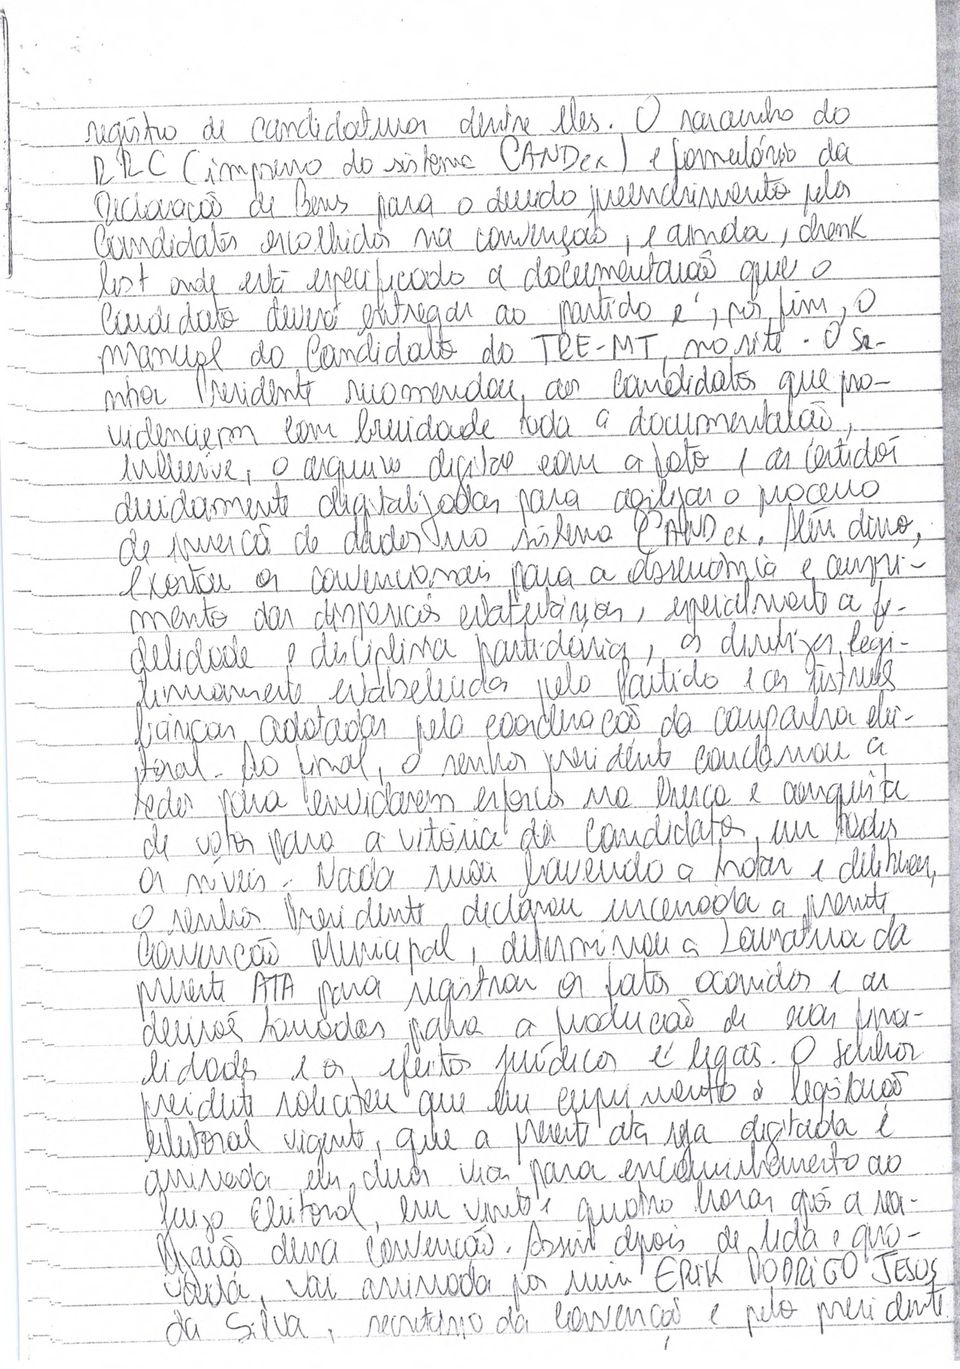 registro de candidaturas dentre eles. O rascunho do
RRC (impresso do sistema CANDex) e formulário da
Declaração de Bens para o devido preenchimento pelos
Candidatos escolhidos na convenção, e ainda, chenk
list onde está especificado a documentação que o
Candidato deverá entregar ao partido e, por fim, o
manual do Candidato do TRE-MT, no site. O Se-
nhor Presidente recomendou, aos candidatos que pro-
videnciem com brevidade toda a documentação,
inclusive, o arquivo digital com a foto e as certidões
devidamente digitalizadas para agilizar o processo
de inserção de dados no sistema CANDex. Além disso,
exortou os convencionais para a observância e cumpri-
mento das disposições estatutárias, especialmente a fi-
delidade e disciplina partidária, as diretrizes legi-
timamente estabelecidas pelo Partido e as
adotadas pela coordenação da campanha elei-
toral. Ao final, o senhor presidente conclamou a
todos para envidarem esforços na busca e conquista
de votos para a vitória de Candidatos, em todos
os níveis. Nada mais havendo a tratar e deliberar,
O senhor Presidente declarou encerrada a presente
Convenção Municipal, determinou a Lavratura da
presente ATA para registrar os fatos ocorridos e as
decisões tomadas para a produção de suas fina-
lidades e os efeitos jurídicos e legais. O Senhor
presidente solicitou que em cumprimento à legislação
eleitoral vigente, que a presente ata seja digitada e
assinada em duas vias para encaminhamento ao
Juízo Eleitoral, em vinte e quatro horas após a rea-
lização dessa Convenção. Assim depois de lida e apro-
vada, vai assinada por mim ERIK RODRIGO JESUS
da Silva, secretário da Convenção e pelo presidente